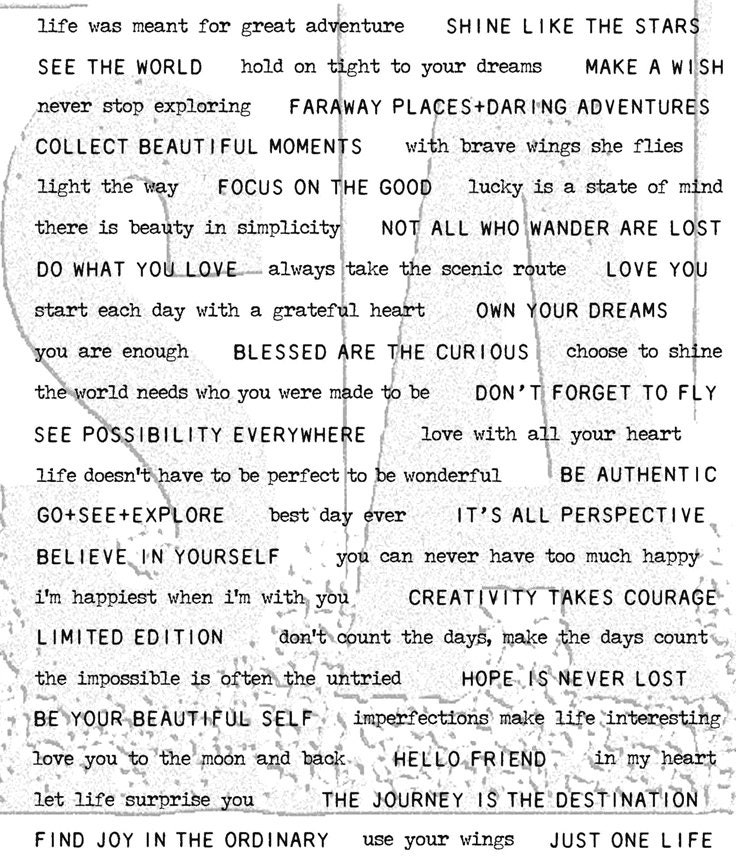 life was meant for great adventure SHINE LIKE THE STARS
SEE THE WORLD hold on tight to your dreams MAKE A WISH
never stop exploring FARAWAY PLACES+DARING ADVENTURES
COLLECT BEAUTIFUL MOMENTS with brave wings she flies
light the way FOCUS ON THE GOOD lucky is a state of mind
there is beauty in simplicity NOT ALL WHO WANDER ARE LOST
DO WHAT YOU LOVE always take the scenic route LOVE YOU
start each day with a grateful heart OWN YOUR DREAMS
you are enough BLESSED ARE THE CURIOUS choose to shine
the world needs who you were made to be DON'T FORGET TO FLY
SEE POSSIBILITY EVERYWHERE love with all your heart
life doesn't have to be perfect to be wonderful BE AUTHENTIC
GO+SEE+EXPLORE best day ever IT'S ALL PERSPECTIVE
BELIEVE IN YOURSELF you can never have too much happy
i'm happiest when i'm with you CREATIVITY TAKES COURAGE
LIMITED EDITION don't count the days, make the days count
the impossible is often the untried HOPE IS NEVER LOST
BE YOUR BEAUTIFUL SELF imperfections make life interesting
love you to the moon and back HELLO FRIEND in my heart
let life surprise you THE JOURNEY IS THE DESTINATION
FIND JOY IN THE ORDINARY use your wings JUST ONE LIFE